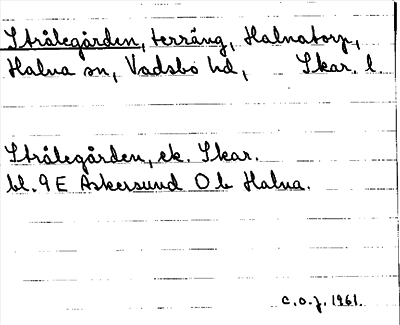 Strålegården, terräng, Halnatorp,
Halna sn, Vadsbo hd, Skar. l.
Strålegården, ek. Skar.
bl. 9 E Askersund O b Halna.
C.O.J. 1961.